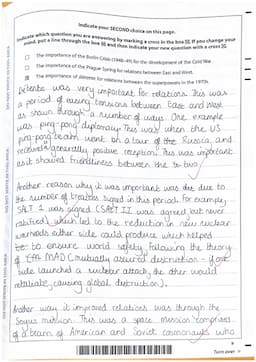 Indicate your SECOND choice on this page.
Indicate which question you are answering by marking a cross in the box ☒. If you change your
mind, put a line through the box and then indicate your new question with a cross ☒.
The importance of the Berlin Crisis (1948–49) for the development of the Cold War.
The importance of the Prague Spring for relations between East and West.
The importance of détente for relations between the superpowers in the 1970s.
Detente was very important for relations. This was
a period of easing tensions between East and West
as shown through a number of ways. One example
was ping-pong diplomacy. This was when the US
ping pong team went on a tour of the Russia, and
recieved generally positive reception. This was important
as it showed friendliness between the two
Another reason why it was important was due to
the number of treaties signed in this period. For example,
SALT 1 was signed (SALT II was agreed but never
ratified) which led to the reduction in new nuclear
warheads either side could produce which helped
to ensure world safety, following the theory
of MAD (mutually assured destruction - if one
side launched a nuclear attack, the other would
retaliate, causing global destruction).
Another way it improved relations was through the
Soyuz mission. This was a space mission comprises
of a team of American and Soviet cosmonauts who
9
Turn over